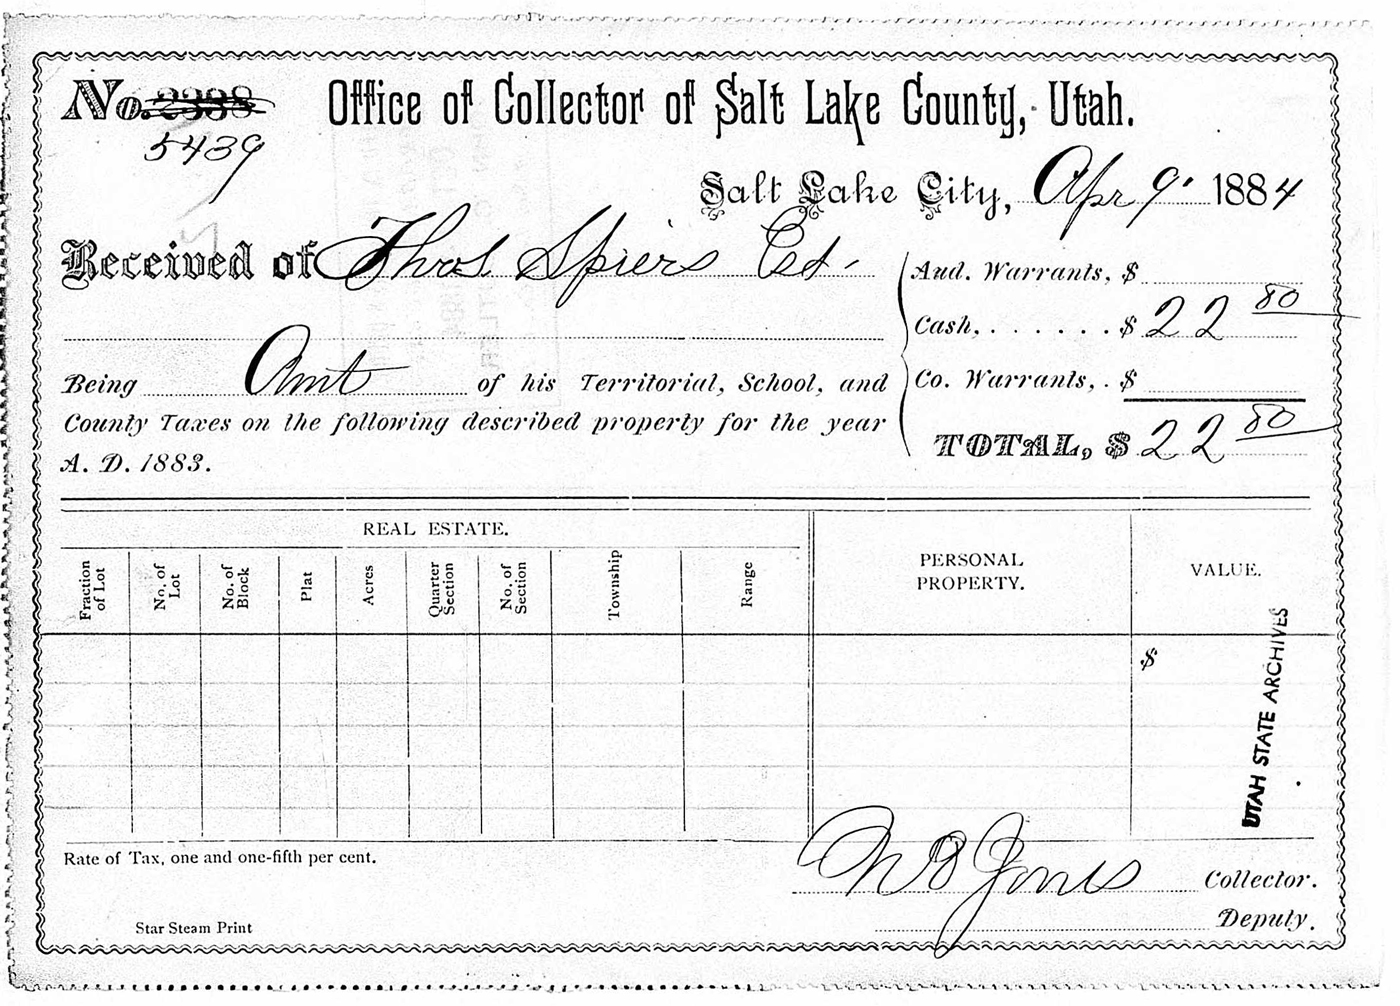 No. 2338 Office of Collector of Salt Lake County, Utah.
5439
Salt Lake City, Apr 9. 1884
Received of Thos. Spiers Est.
Aud. Warrants, $
Cash, . . . . . . $ 22 80
Being Amt of his Territorial, School, and
Co. Warrants, . $
County Taxes on the following described property for the year
TOTAL, $ 22 80
A. D. 1883.
REAL ESTATE.
PERSONAL
PROPERTY.
VALUE.
Fraction
of Lot
No. of
Lot
No. of
Block
Plat
Acres
Quarter
Section
No. of
Section
Township
Range
$
UTAH STATE ARCHIVES
Rate of Tax, one and one-fifth per cent.
N B Jones Collector.
Deputy.
Star Steam Print